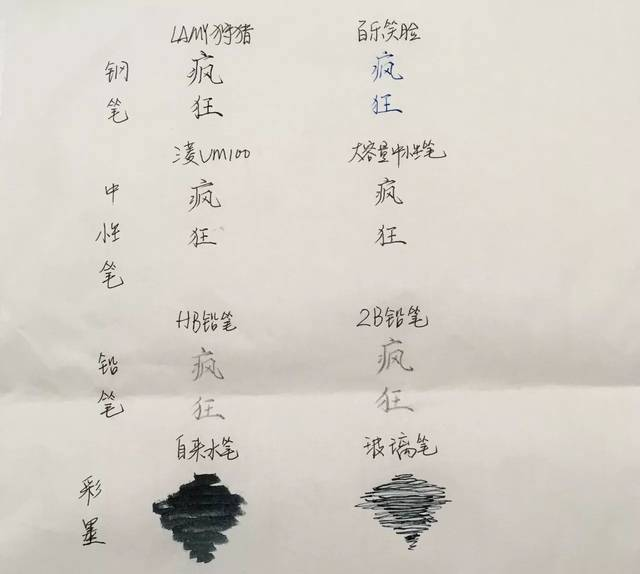 LAMY狩猎 百乐笑脸
钢笔 疯狂 疯狂
三菱UM100 大容量中性笔
中性笔 疯狂 疯狂
HB铅笔 2B铅笔
铅笔 疯狂 疯狂
自来水笔 玻璃笔
彩墨